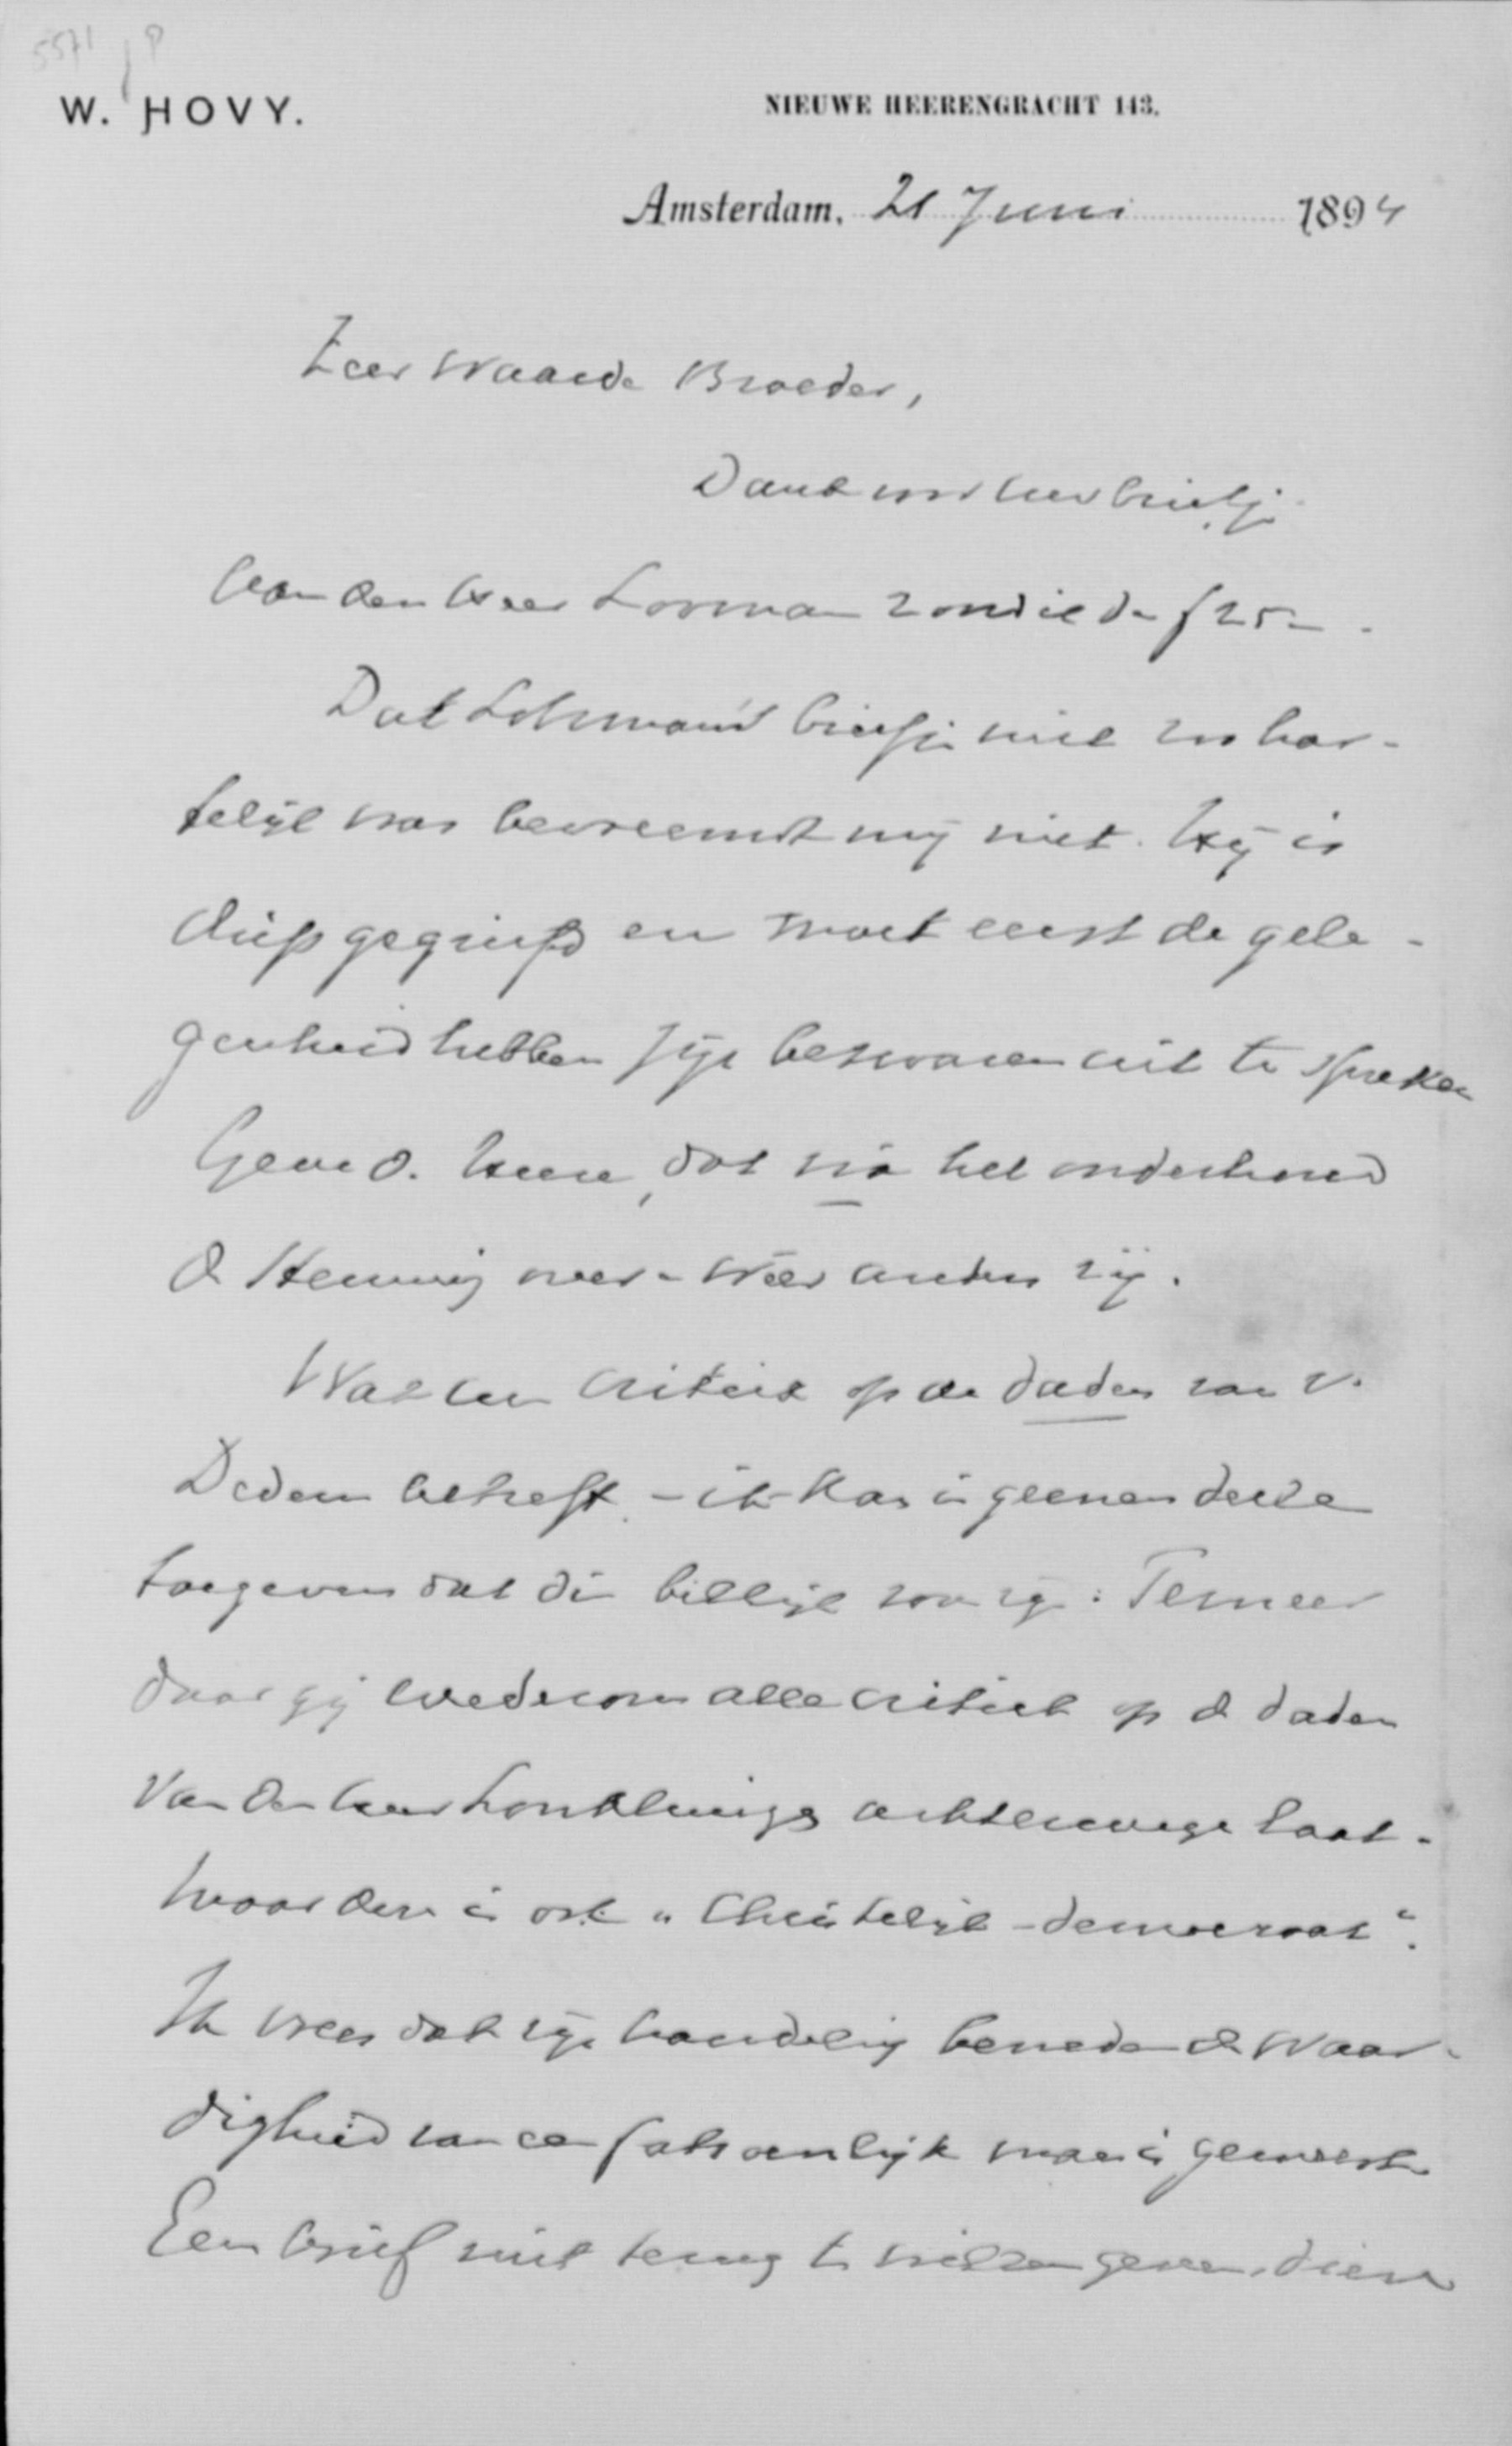 5571 P
W. HOVY.
NIEUWE HEERENGRACHT 143.
Amsterdam, 21 Juni 1894
Zeer Waarde Broeder,
Dank voor uw briefje
Aan den Heer zond ik de f 25.-
Dat Lohman's briefje niet zoo har-
telijk was bevreemdt mij niet. Hij is
diep gegriefd en moet eerst de gele-
genheid hebben zijn bezwaren uit te spreken
Geve d. Heere, dat nà het onderhoud
de stemming over & weer anders zij.
Wat uw critiek op de daden van v.
Dedem betreft – ik kan in geenen deele
toegeven dat die billijk zou zijn: Temeer
daar gij wederom alle critiek op de daden
van den heer achterwege laat.
Maar deze is ook „Christelijk-democraat".
Ik vrees dat zijn handeling beneden de waar-
digheid van een fatsoenlijk man is geweest.
Een brief niet terug te willen geven, dien